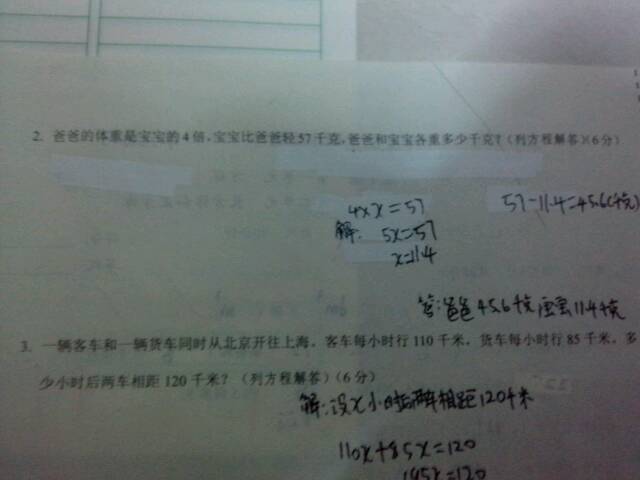 2. 爸爸的体重是宝宝的4倍,宝宝比爸爸轻57千克,爸爸和宝宝各重多少千克?(列方程解答)(6分)
4x x=57
解: 5x=57
x=11.4
57-11.4=45.6(千克)
答:爸爸45.6千克 宝宝11.4千克
3. 一辆客车和一辆货车同时从北京开往上海。客车每小时行110千米,货车每小时行85千米。多
少小时后两车相距120千米?(列方程解答)(6分)
解:设x小时后两车相距120千米
110x+85x=120
195x=120